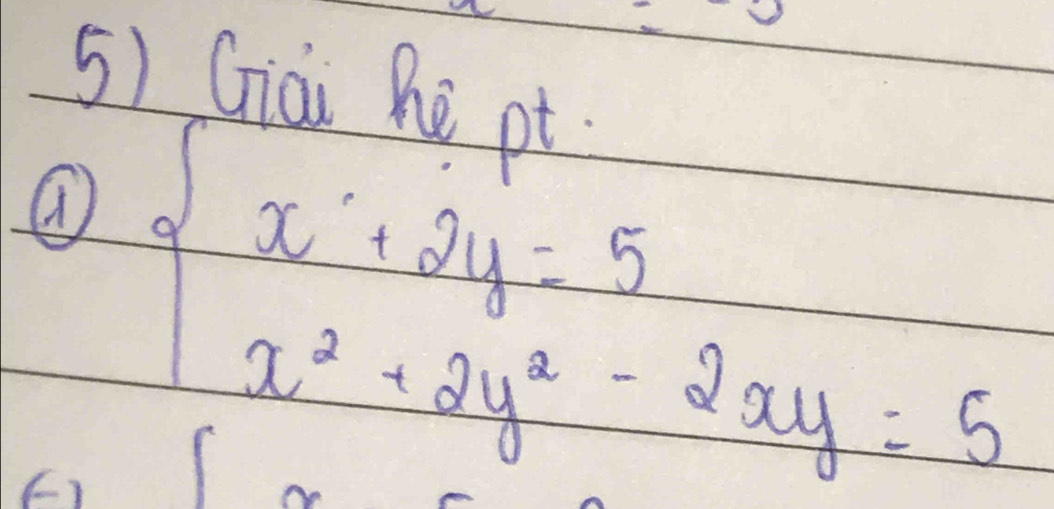 5) Giải hệ pt.
① { x + 2y = 5
x² + 2y² - 2xy = 5